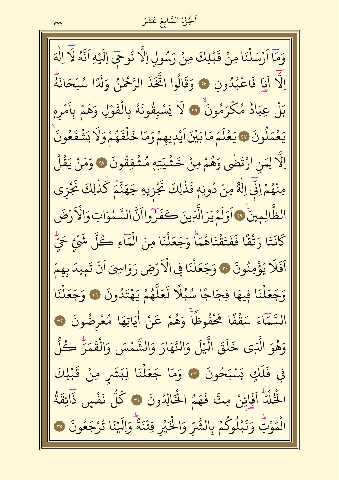 اَلْجُزْءُ السَّابِعَ عَشَرَ
وَمَٓا اَرْسَلْنَا مِنْ قَبْلِكَ مِنْ رَسُولٍ اِلَّا نُوحٖٓي اِلَيْهِ اَنَّهُ لَٓا اِلٰهَ
اِلَّٓا اَنَا۬ فَاعْبُدُونِ ۝٢٥ وَقَالُوا اتَّخَذَ الرَّحْمٰنُ وَلَدًا سُبْحَانَهُؕ
بَلْ عِبَادٌ مُكْرَمُونَۙ ۝٢٦ لَا يَسْبِقُونَهُ بِالْقَوْلِ وَهُمْ بِاَمْرِهٖ
يَعْمَلُونَ ۝٢٧ يَعْلَمُ مَا بَيْنَ اَيْدٖيهِمْ وَمَا خَلْفَهُمْ وَلَا يَشْفَعُونَۙ
اِلَّا لِمَنِ ارْتَضٰى وَهُمْ مِنْ خَشْيَتِهٖ مُشْفِقُونَ ۝٢٨ وَمَنْ يَقُلْ
مِنْهُمْ اِنّٖٓي اِلٰهٌ مِنْ دُونِهٖ فَذٰلِكَ نَجْزٖيهِ جَهَنَّمَؕ كَذٰلِكَ نَجْزِي
الظَّالِمٖينَ۟ ۝٢٩ اَوَلَمْ يَرَ الَّذٖينَ كَفَرُٓوا اَنَّ السَّمٰوَاتِ وَالْاَرْضَ
كَانَتَا رَتْقًا فَفَتَقْنَاهُمَاؕ وَجَعَلْنَا مِنَ الْمَٓاءِ كُلَّ شَيْءٍ حَيٍّؕ
اَفَلَا يُؤْمِنُونَ ۝٣٠ وَجَعَلْنَا فِي الْاَرْضِ رَوَاسِيَ اَنْ تَمٖيدَ بِهِمْ
وَجَعَلْنَا فٖيهَا فِجَاجًا سُبُلًا لَعَلَّهُمْ يَهْتَدُونَ ۝٣١ وَجَعَلْنَا
السَّمَٓاءَ سَقْفًا مَحْفُوظًاۚ وَهُمْ عَنْ اٰيَاتِهَا مُعْرِضُونَ ۝٣٢
وَهُوَ الَّذٖي خَلَقَ الَّيْلَ وَالنَّهَارَ وَالشَّمْسَ وَالْقَمَرَؕ كُلٌّ
فٖي فَلَكٍ يَسْبَحُونَ ۝٣٣ وَمَا جَعَلْنَا لِبَشَرٍ مِنْ قَبْلِكَ
الْخُلْدَؕ اَفَا۬ئِنْ مِتَّ فَهُمُ الْخَالِدُونَ ۝٣٤ كُلُّ نَفْسٍ ذَٓائِقَةُ
الْمَوْتِؕ وَنَبْلُوكُمْ بِالشَّرِّ وَالْخَيْرِ فِتْنَةًؕ وَاِلَيْنَا تُرْجَعُونَ ۝٣٥